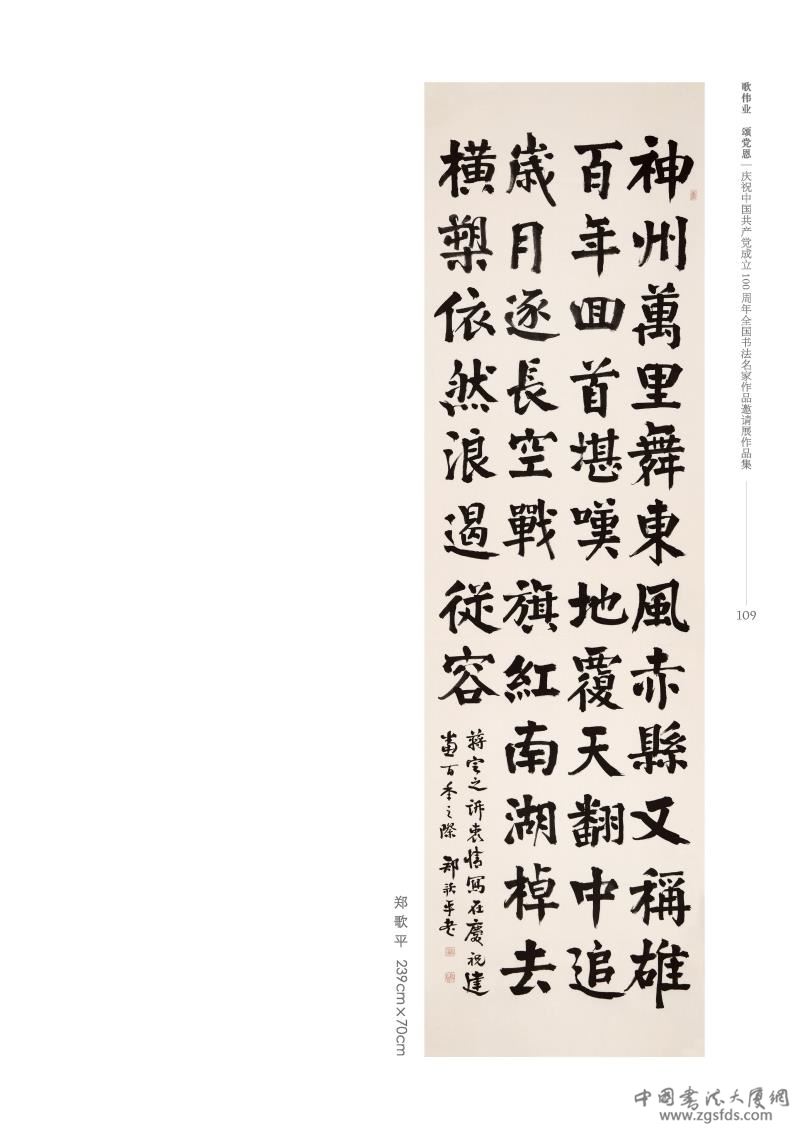 歌伟业 颂党恩 | 庆祝中国共产党成立100周年全国书法名家作品邀请展作品集
109
神州萬里舞東風赤縣又稱雄
百年回首堪嘆地覆天翻中追
歲月逐長空戰旗紅南湖棹去
橫槊依然浪遏從容
蔣定之訴衷情寫在慶祝建
黨百年之際 鄭歌平書
郑歌平 239cm×70cm
中国书法大厦網
www.zgsfds.com